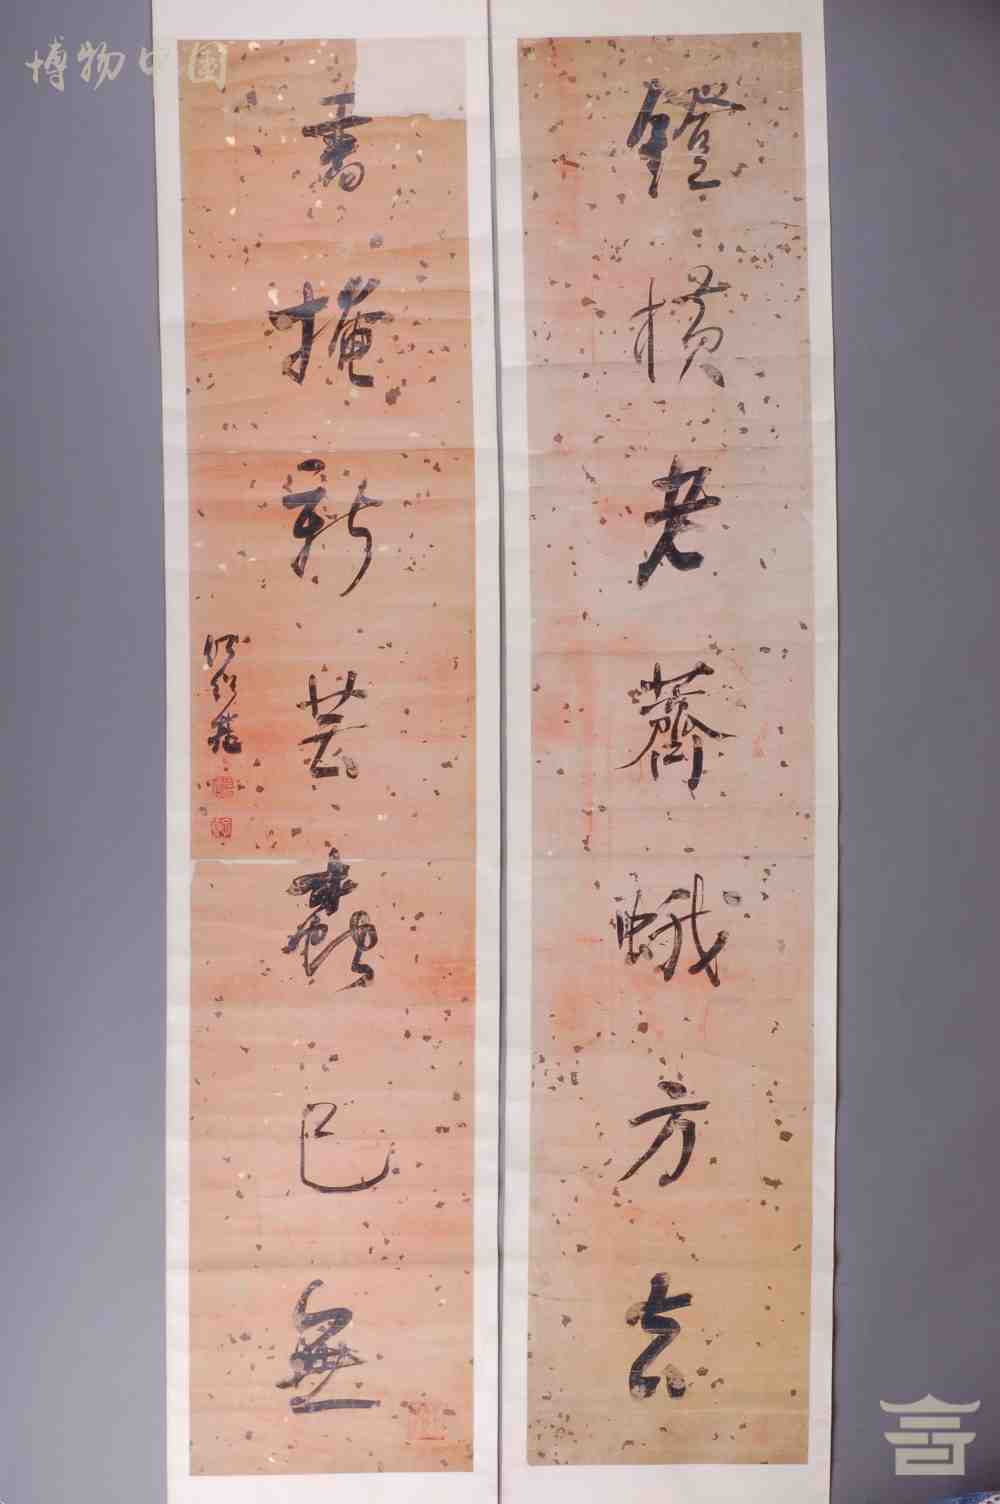 博物中国
鐙橫老薺蛾方去
書掩新芸蠹已無
何紹基